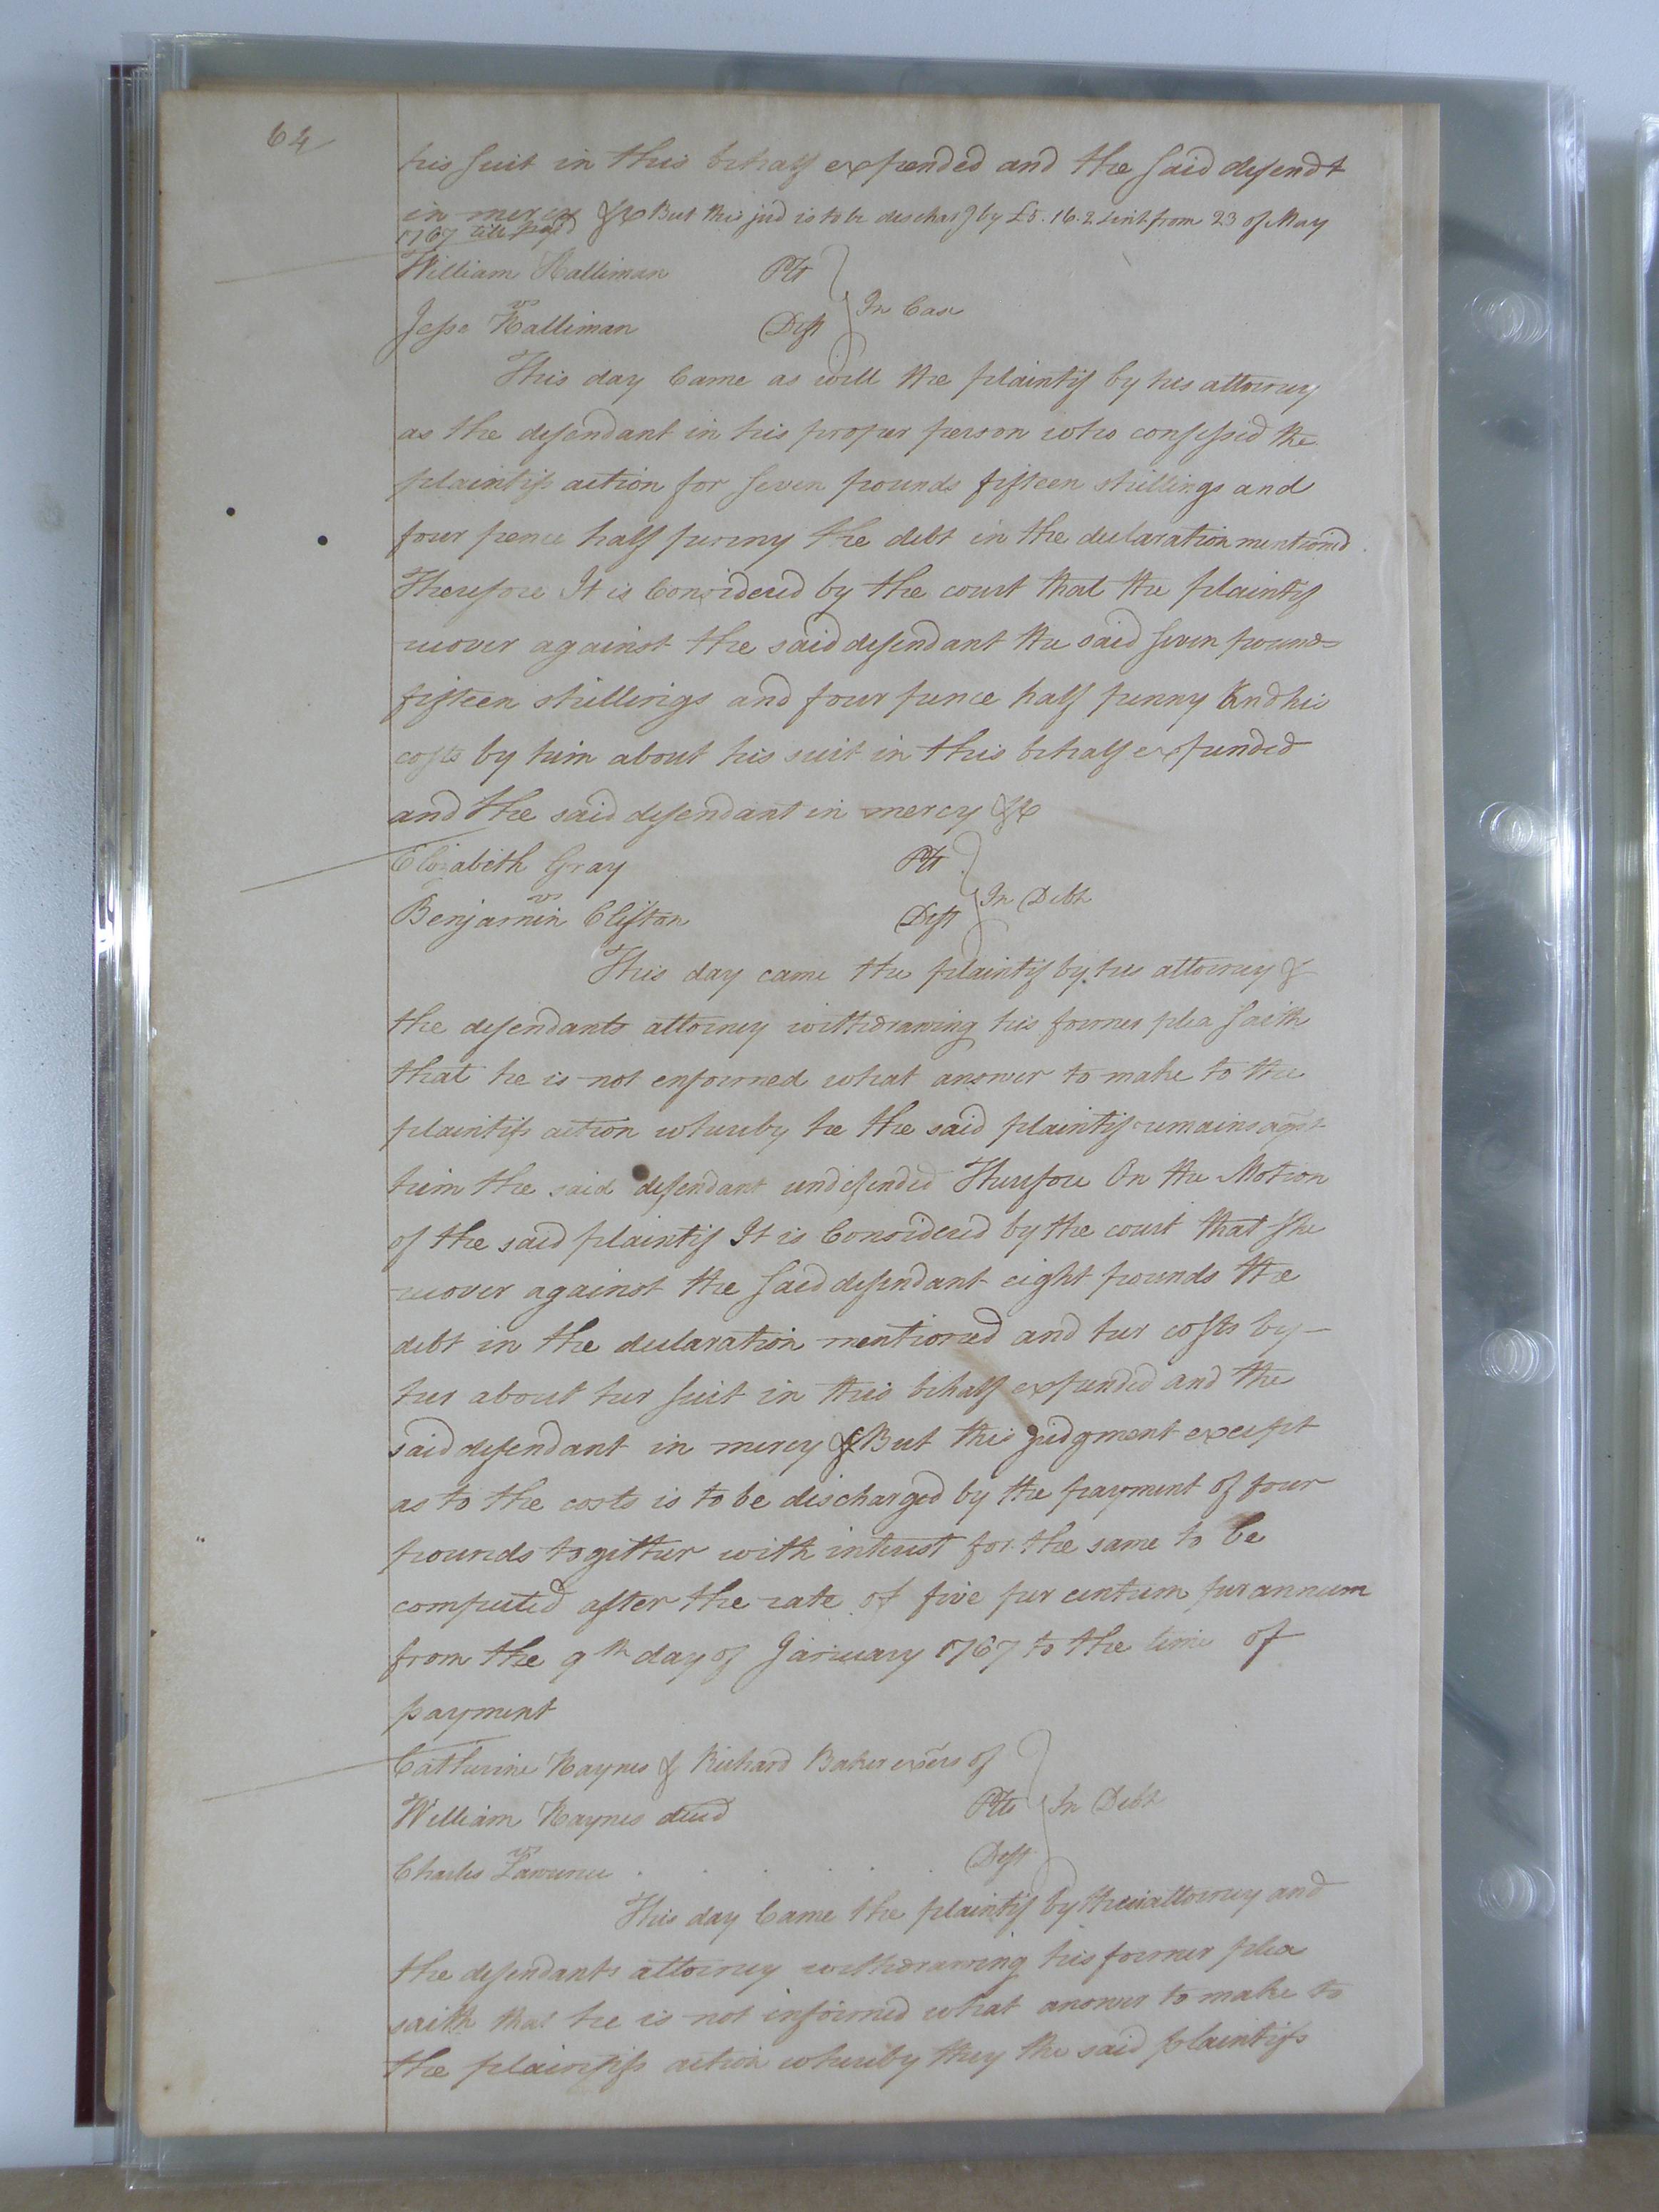 64
his suit in this behalf expended and the said defendt
in mercy &c But this jud is to be dischargd by £5.16.2 & int from 23 of May
1767 till payd
William Halliman Plt
vs
In Case
Jesse Halliman Deft
This day Came as will the plaintif by his attorney
as the defendant in his proper person who confessed the
plaintifs action for seven pounds fifteen shillings and
four pence half penny the debt in the declaration mentioned
Therefore It is Considered by the court that the plaintif
recover against the said defendant the said seven pounds
fifteen shillings and four pence half penny And his
costs by him about his suit in this behalf expended
and the said defendant in mercy &c
Elizabeth Gray Plt
vs
In Debt
Benjamin Clifton Deft
This day came the plaintif by his attorney &
the defendants attorney withdrawing his former plea saith
that he is not enformed what answer to make to the
plaintifs action whereby he the said plaintif remains agst
him the said defendant undefended Therefore On the Motion
of the said plaintif It is Considered by the court that she
recover against the said defendant eight pounds the
debt in the declaration mentioned and her costs by
her about her suit in this behalf expended and the
said defendant in mercy & But this judgment except
as to the costs is to be discharged by the payment of four
pounds together with interest for the same to be
computed after the rate of five per centum per annum
from the 9th day of January 1767 to the time of
payment
Catherine Haynes & Richard Baker exers of
William Haynes decd Plts In Debt
vs
Charles Lawrence Deft
This day Came the plaintif by their attorney and
the defendants attorney withdrawing his former plea
saith that he is not informed what answer to make to
the plaintifs action whereby they the said plaintifs